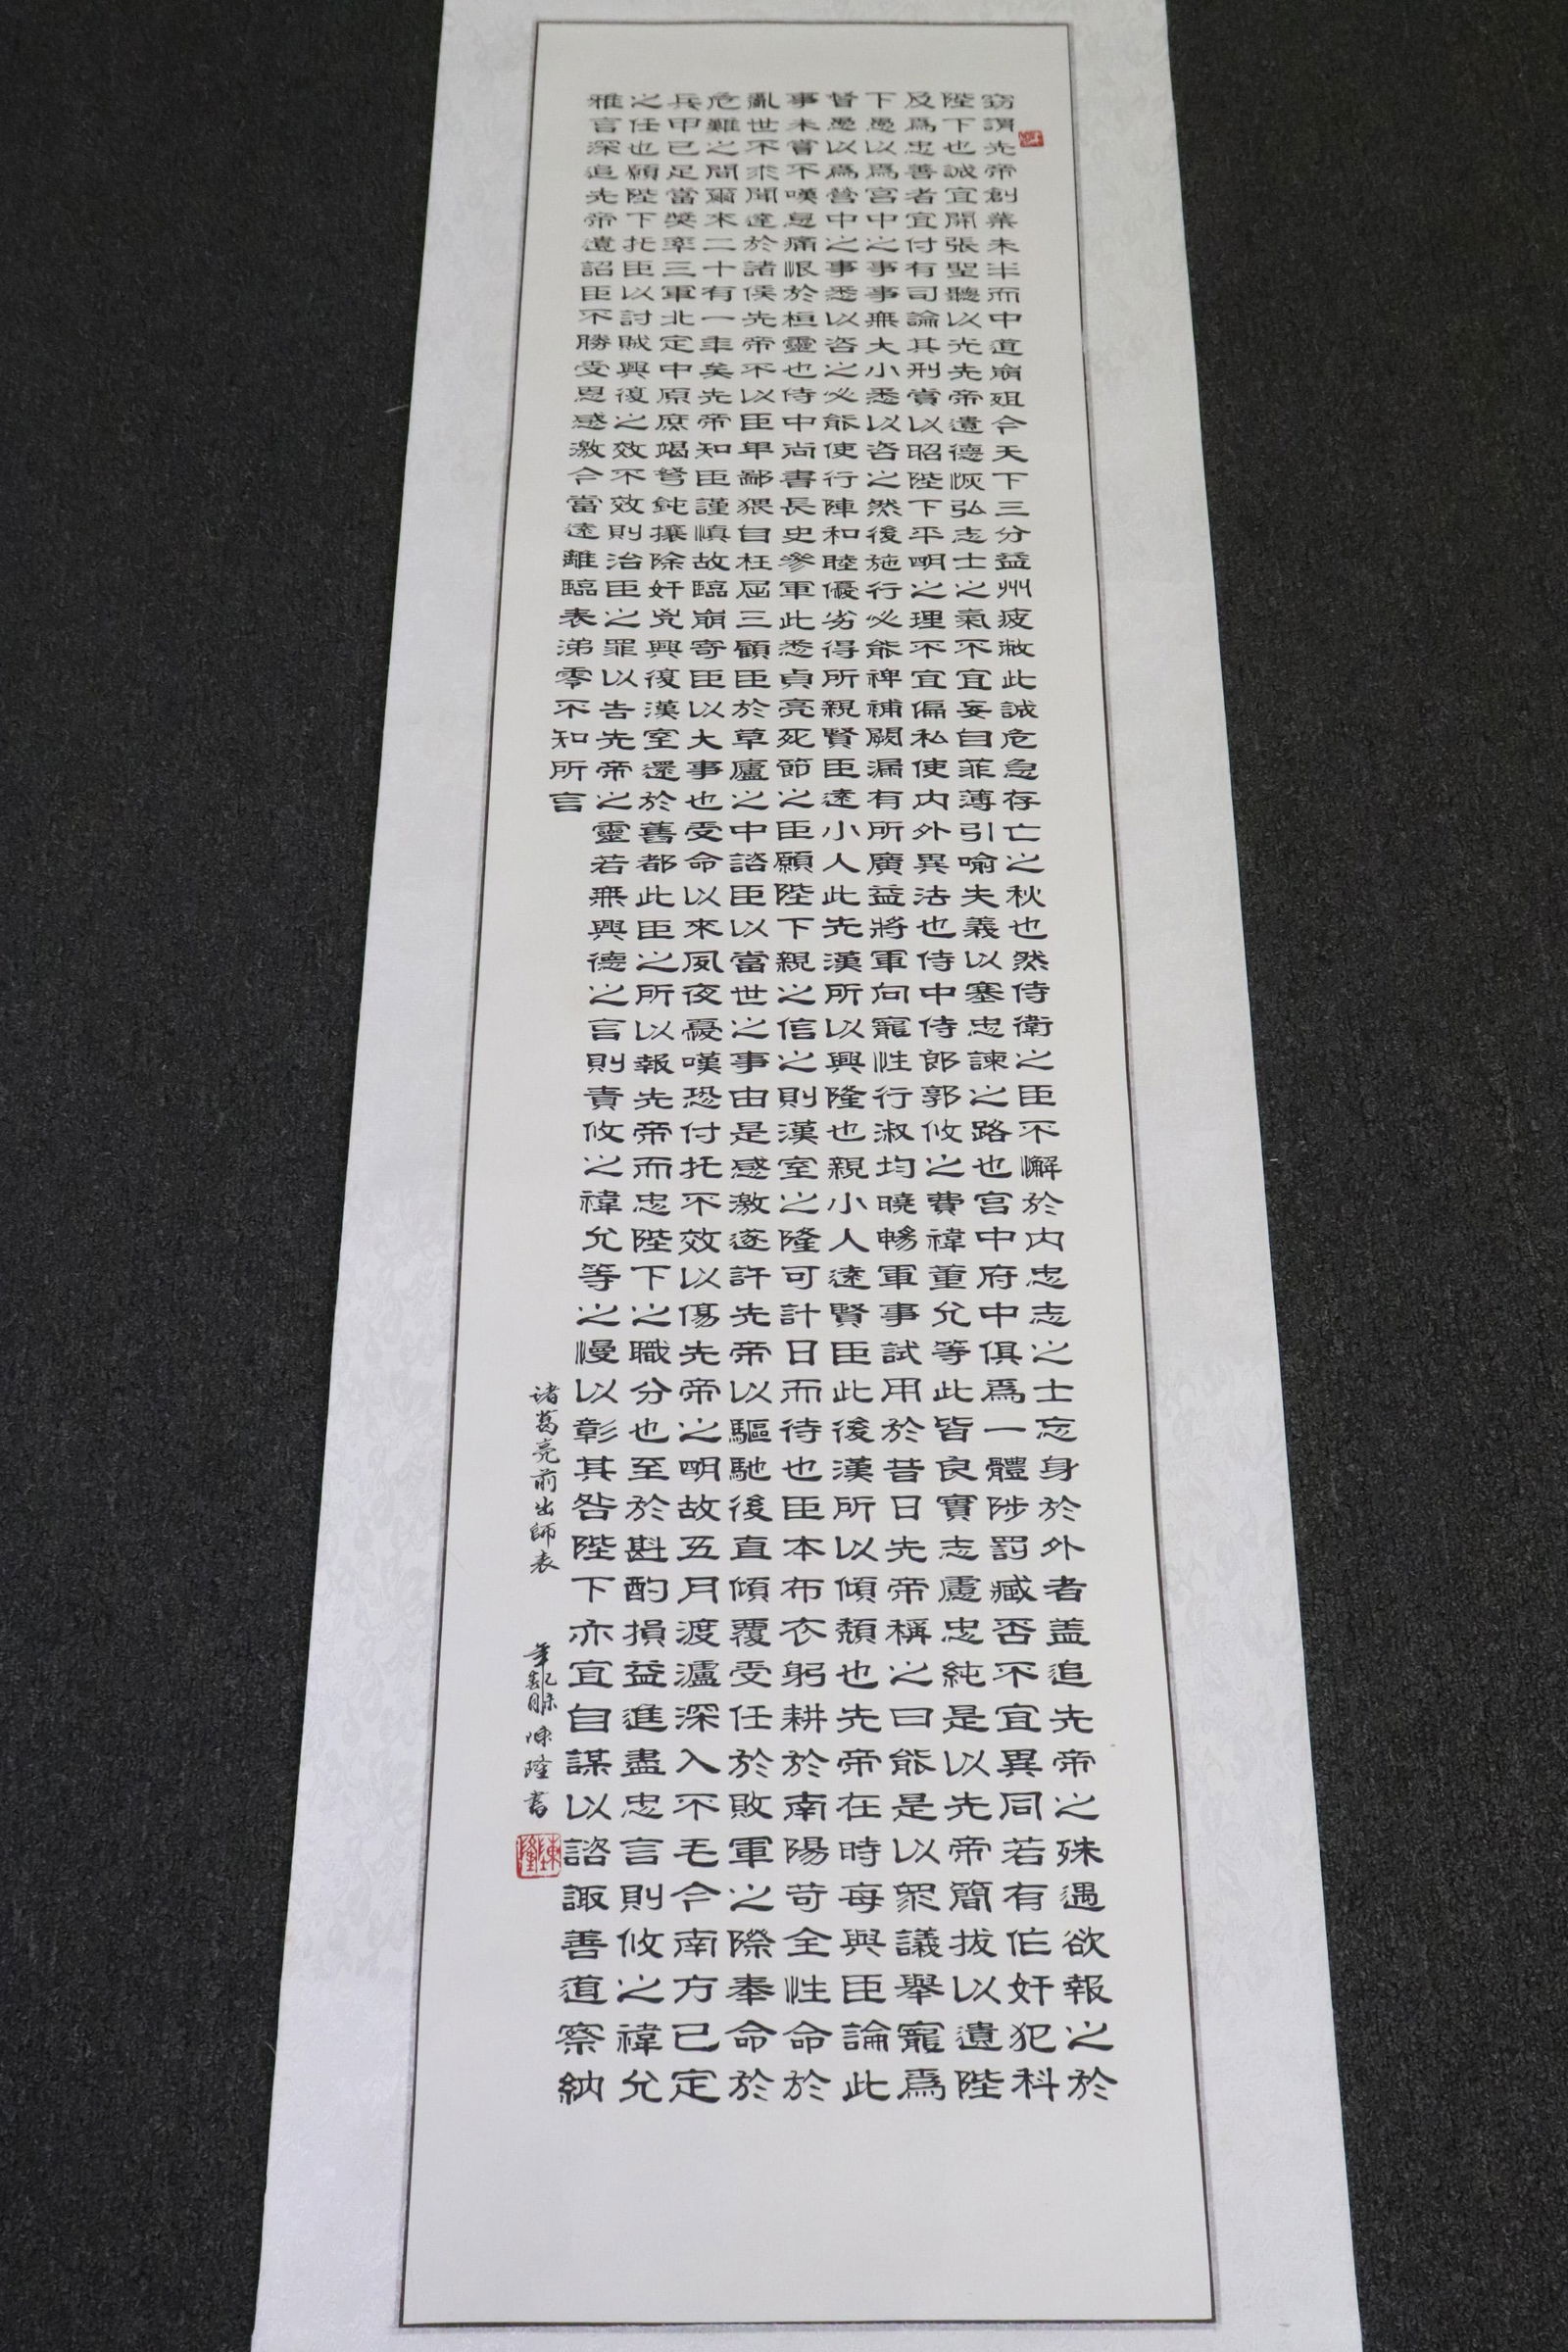 窃謂先帝創業未半而中道崩殂今天下三分益州疲敝此誠危急存亡之秋也然侍衛之臣不懈於内忠志之士忘身於外者盖追先帝之殊遇欲報之於
陛下也誠宜開張聖聽以光先帝遺德恢弘志士之氣不宜妄自菲薄引喻失義以塞忠諫之路也宫中府中俱爲一體陟罰臧否不宜異同若有作奸犯科
及爲忠善者宜付有司論其刑賞以昭陛下平明之理不宜偏私使内外異法也侍中侍郎郭攸之費禕董允等此皆良實志慮忠純是以先帝簡拔以遺陛
下愚以爲宫中之事事無大小悉以咨之然後施行必能裨補闕漏有所廣益將軍向寵性行淑均曉暢軍事試用於昔日先帝稱之曰能是以衆議舉寵爲
督愚以爲營中之事悉以咨之必能使行陣和睦優劣得所親賢臣遠小人此先漢所以興隆也親小人遠賢臣此後漢所以傾頹也先帝在時每與臣論此
事未嘗不嘆息痛恨於桓靈也侍中尚書長史參軍此悉貞亮死節之臣願陛下親之信之則漢室之隆可計日而待也臣本布衣躬耕於南陽苟全性命於
亂世不求聞達於諸侯先帝不以臣卑鄙猥自枉屈三顧臣於草廬之中諮臣以當世之事由是感激遂許先帝以驅馳後直傾覆受任於敗軍之際奉命於
危難之間爾来二十有一年矣先帝知臣謹慎故臨崩寄臣以大事也受命以來夙夜憂嘆恐付托不效以傷先帝之明故五月渡瀘深入不毛今南方已定
兵甲已足當獎率三軍北定中原庶竭弩鈍攘除奸兇興復漢室還於舊都此臣之所以報先帝而忠陛下之職分也至於斟酌損益進盡忠言則攸之禕允
之任也願陛下托臣以討賊興復之效不效則治臣之罪以告先帝之靈若無興德之言則責攸之禕允等之慢以彰其咎陛下亦宜自謀以諮諏善道察納
雅言深追先帝遺詔臣不勝受恩感激今當遠離臨表涕零不知所言
诸葛亮前出師表
陳隆書
陳隆